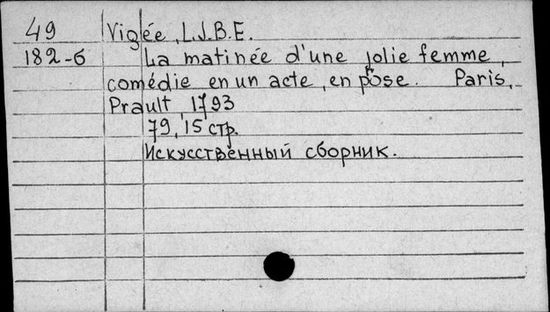 49 Vigée, L.J.B.E.
182-6 La matinée d'une jolie femme,
comédie en un acte, en pose. Paris,
Prault, 1793
79, 15 стр.
Искусственный сборник.